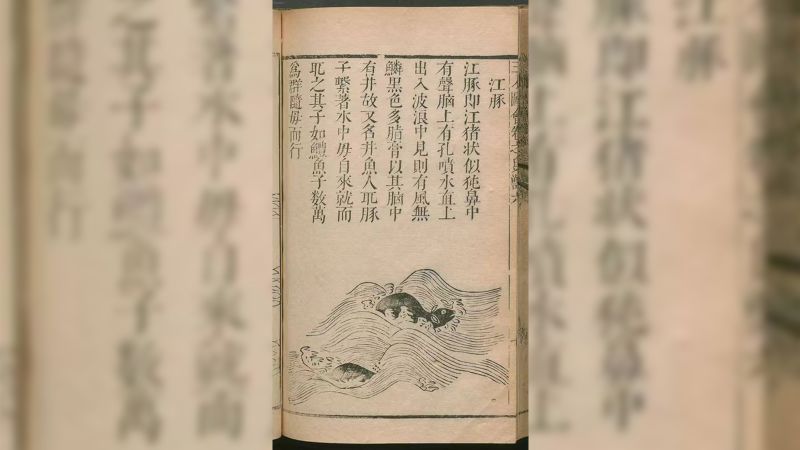 三才圖會卷之
江豚
江豚即江猪狀似㹠鼻中
有聲腦上有孔噴水直上
出入波浪中見則有風無
鱗黑色多脂膏以其腦中
有井故又名井魚人取豚
子繫著水中母自來就而
取之其子如鱧魚子數萬
爲群隨母而行